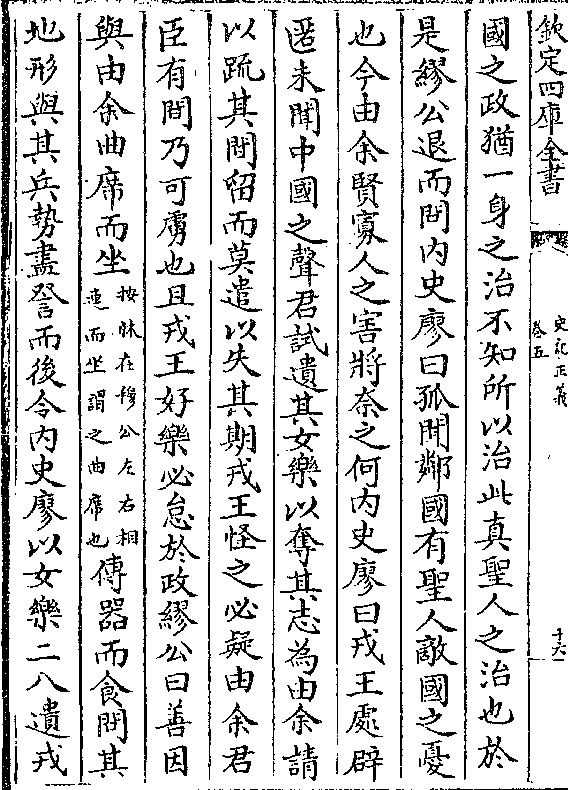 欽定四庫全書
史記正義
卷五
十六
國之政猶一身之治不知所以治此真聖人之治也於
是繆公退而問内史廖曰孤聞鄰國有聖人敵國之憂
也今由余賢寡人之害將奈之何内史廖曰戎王處辟
匿未聞中國之聲君試遺其女樂以奪其志為由余請
以疏其間留而莫遣以失其期戎王怪之必疑由余君
臣有間乃可虜也且戎王好樂必怠於政繆公曰善因
與由余曲席而坐按牀在穆公左右相連而坐謂之曲席也傳器而食問其
地形與其兵勢盡詧而後令内史廖以女樂二八遺戎